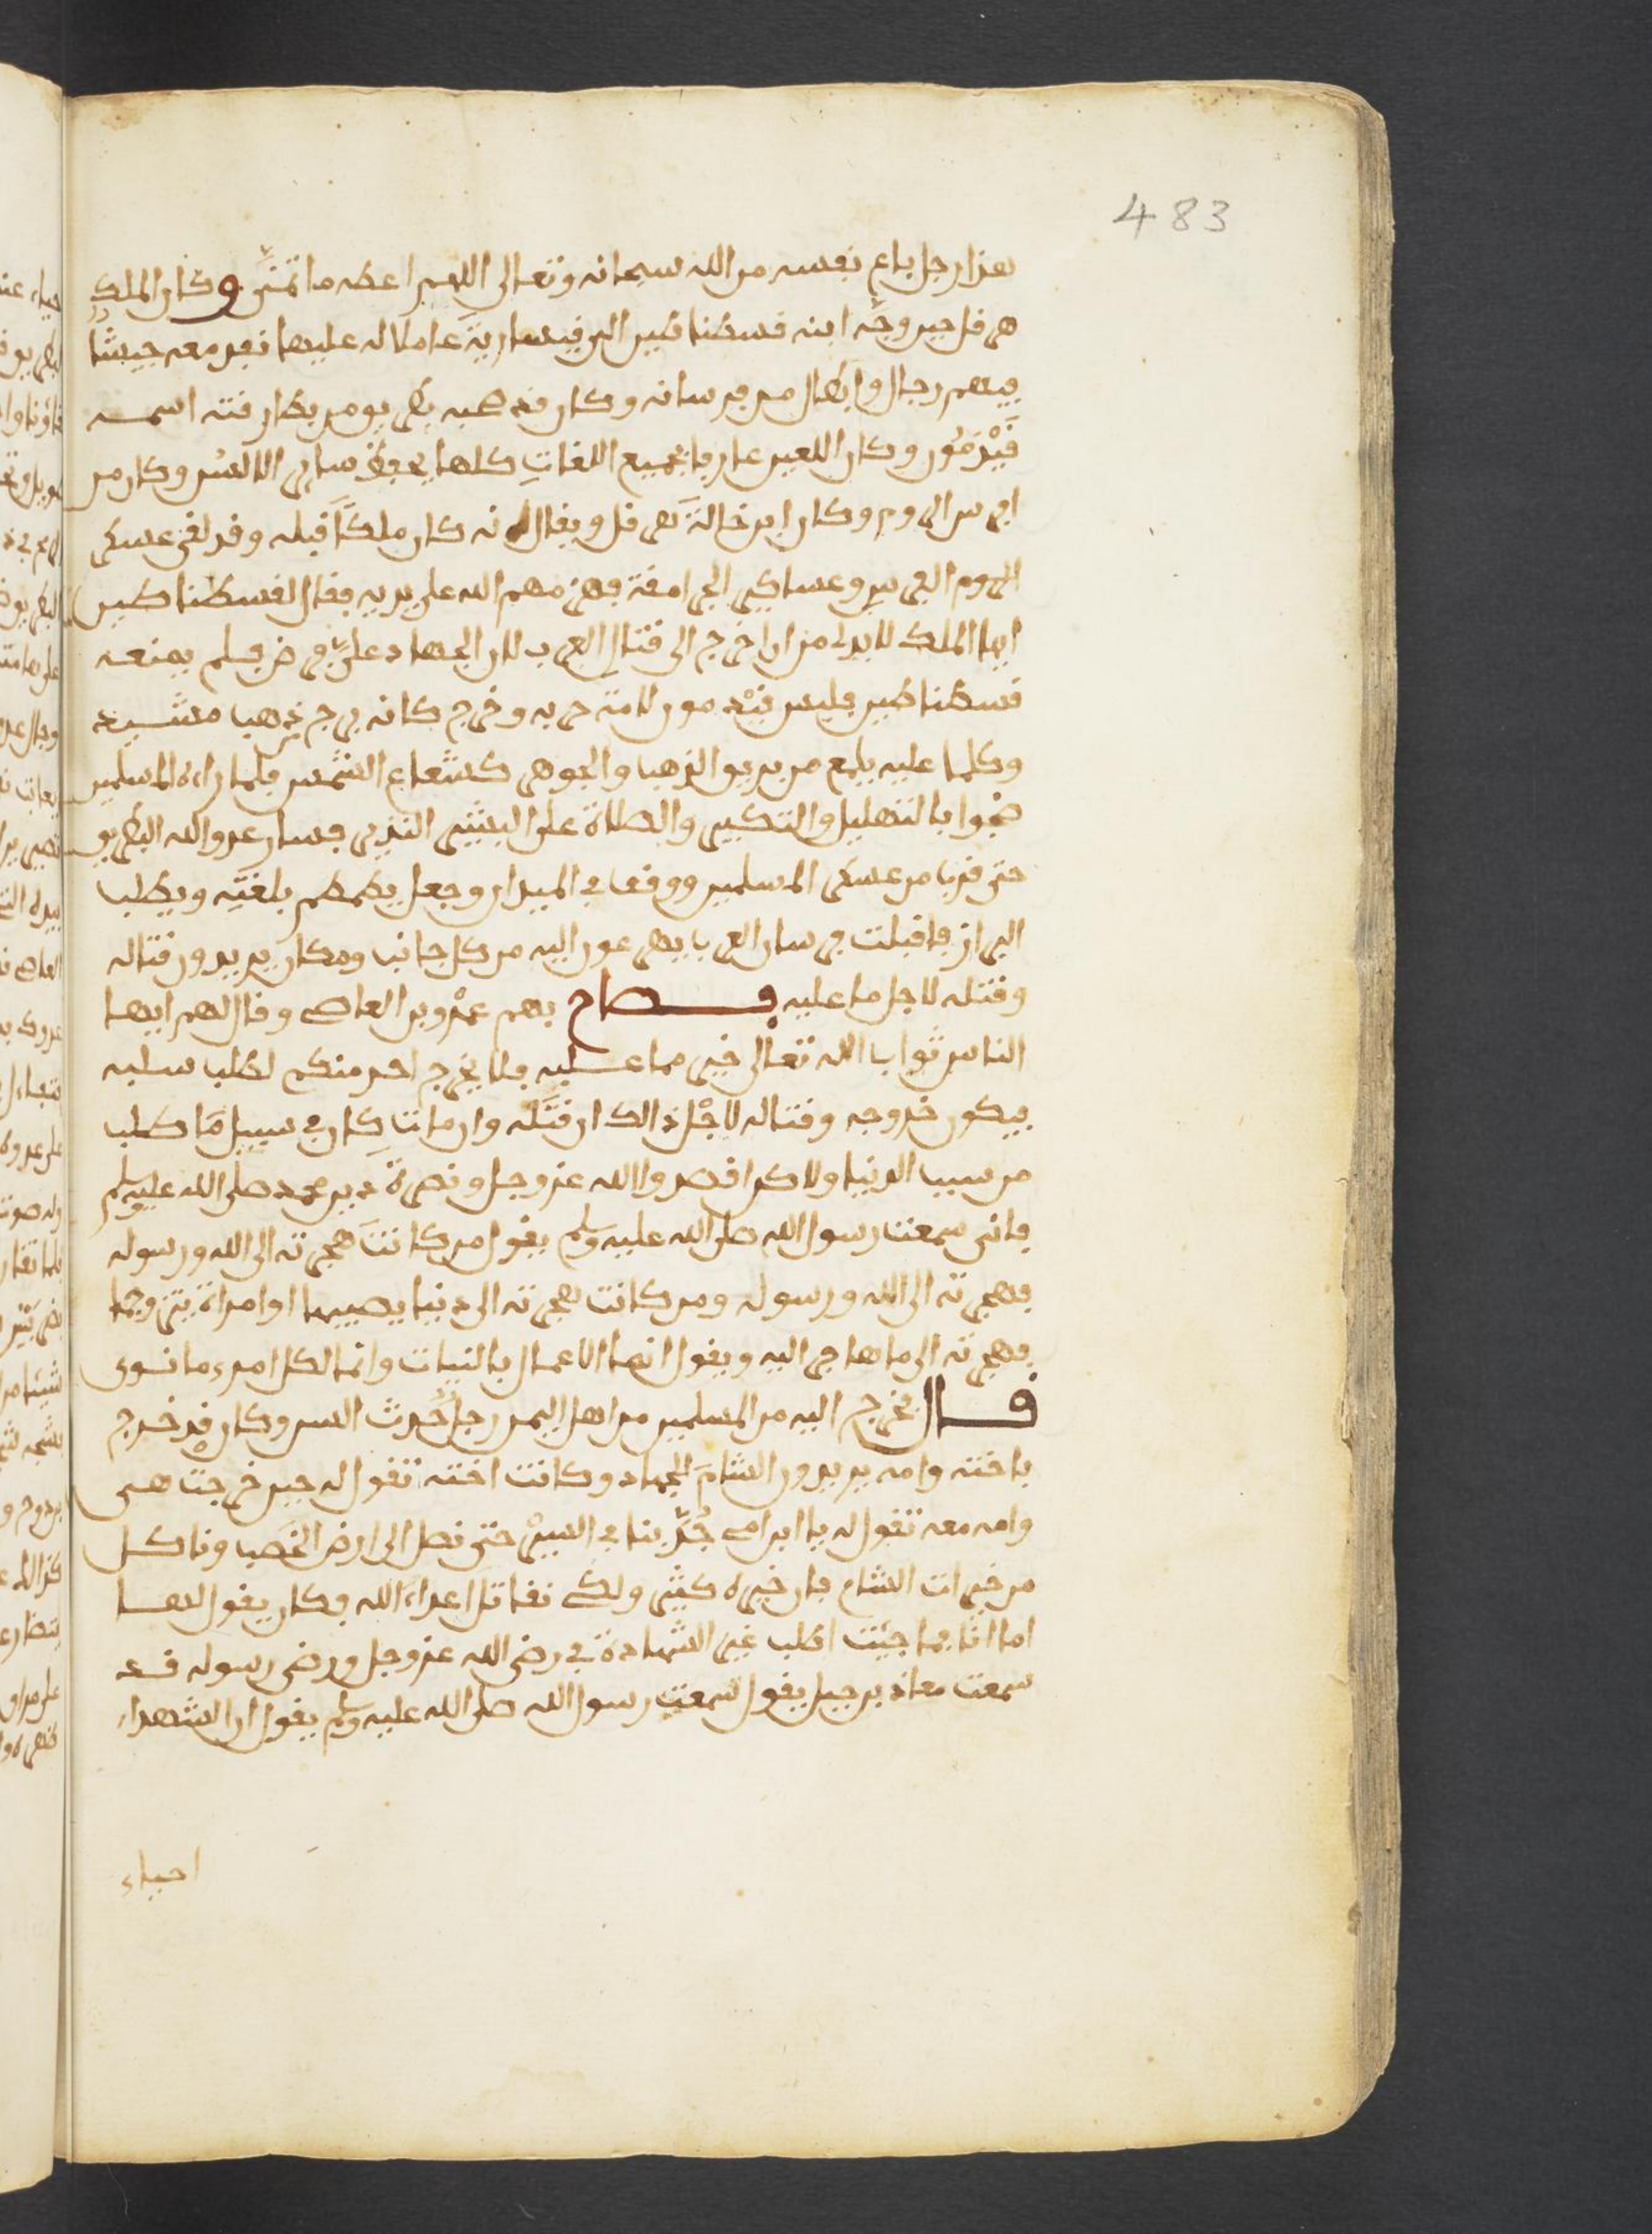 483
هذا رجل باع نفسه من الله سبحانه وتعالى اللهم اعطه ما تمنى وكان الملك
هرقل حين وجّه ابنه قسطنطين الى قيسارية عاملا له عليها نفذ معه جيشا
فيهم رجال وابطال من فرسانه وكان قد صحبه بطريق من بطارقته اسمه
قَيْدَمُون وكان اللعين عارفا بجميع اللغاتِ كلها يحفظ ساير الالسن وكان من
افرس الروم وكان ابن خالة هرقل ويقال انه كان ملكًا قبله وقد لقي عسكر
الروم الفرس وعساكر الجرامقة فهزمهم الله على يديه فقال لقسطنطين
ايها الملك لا بد لي من ان اخرج الى قتال العرب لان الجهاد عليّ فرض فلم يمنعه
قسطنطين فلبس قيْدمون لامة حربه وخرج كانه برج ذهب مشيد
وكلما عليه يلمع من بريق الذهب والجوهر كشعاع الشمس فلما راءه المسلمين
ضجوا بالتهليل والتكبير والصلاة على البشير النذير فسار عدو الله البطريق
حتى قرب من عسكر المسلمين ووقف في الميدان وجعل يطمطم بلغته ويطلب
البراز فاقبلت فرسان العرب يهرعون اليه من كل جانب ومكان يريدون قتاله
وقتله لاجل ما عليه فصاح بهم عمْرو بن العاص وقال لهم ايها
الناس ثواب الله تعالى خير مما عليه فلا يخرج احد منكم لطلب سلبه
فيكون خروجه وقتاله لاجْل ذالك ان قتَله وان مات كان في سبيل ما طلب
من سبب الدنيا ولاكن اقصدوا الله عز وجل ونصرة دين محمد صلى الله عليه وسلم
فانى سمعت رسول الله صلى الله عليه وسلم يقول من كانتَ هجرته الى الله ورسوله
فهجرته الى الله ورسوله ومن كانت هجرته الى دنيا يصيبها او امراة يتزوجها
فهجرته الى ما هاجر اليه ويقول انما الاعمال بالنيات وانما لكل امرء ما نوى
قال فخرج اليه من المسلمين من اهل اليمن رجل حَدث السن وكان قد خرج
باخته وامه يريدون الشام للجهاد وكانت اخته تقول له حين خرجت هى
وامه معه تقول له يا ابن امى جُدّ بنا في السيرْ حتى نصل الى ارض الخَصب وناكل
من خيرات الشام فان خيره كثير ولكى نقاتل اعداء الله فكان يقول لها
اما انا فما جيت اطلب غير الشهادة في رضى الله عز وجل ورضى رسوله قد
سمعت معاذ بن جبل يقول سمعت رسول الله صلى الله عليه وسلم يقول ان الشهداء
احياء